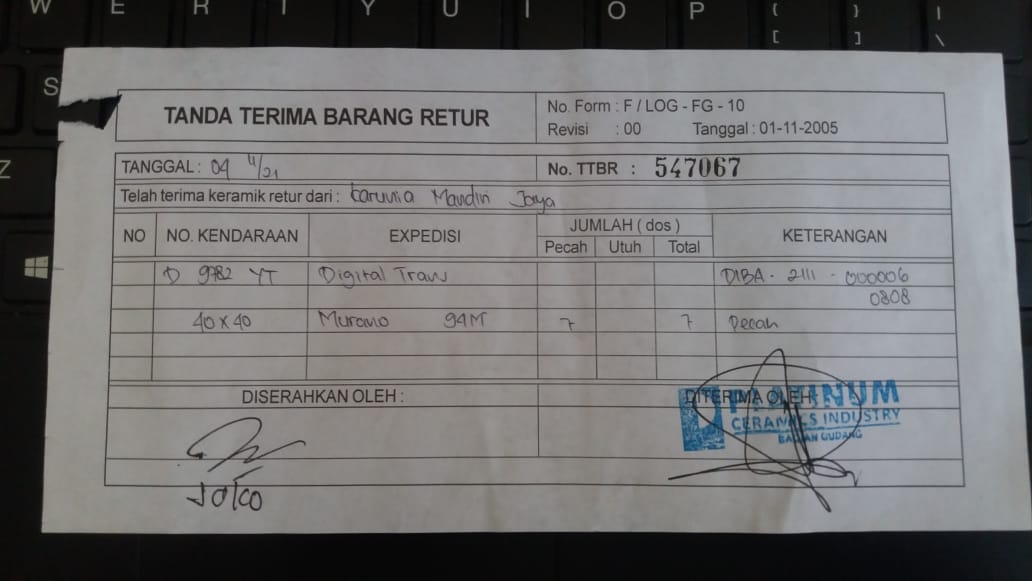 W E R T Y U I O P { }
[ ] \
S
Z
TANDA TERIMA BARANG RETUR
No. Form : F / LOG - FG - 10
Revisi : 00 Tanggal : 01-11-2005
TANGGAL : 04 11/21
No. TTBR : 547067
Telah terima keramik retur dari : Karunia Mandiri Jaya
JUMLAH ( dos )
NO NO. KENDARAAN EXPEDISI Pecah Utuh Total KETERANGAN
D 9782 YT Digital Trans DIBA - 2111 - 000006
0808
40 x 40 Murano 94M 7 7 Pecah
DISERAHKAN OLEH : DITERIMA OLEH
PLATINUM
CERAMICS INDUSTRY
BAGIAN GUDANG
Joko